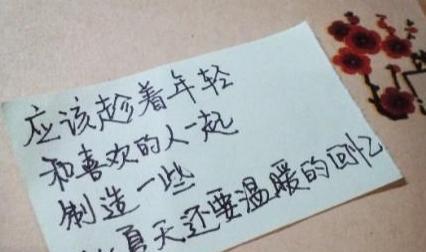 应该趁着年轻
和喜欢的人一起
制造一些
夏天还要温暖的回忆